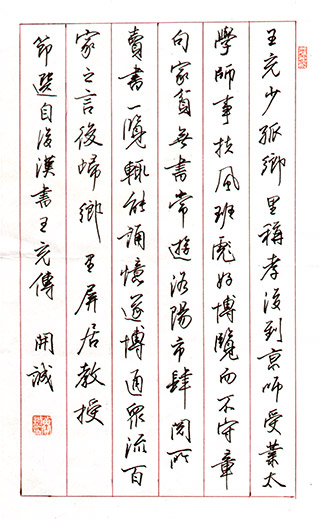 王充少孤鄉里稱孝後到京師受業太
學師事扶風班彪好博覽而不守章
句家貧無書常遊洛陽市肆閱所
賣書一覽輒能誦憶遂博通眾流百
家之言後歸鄉里屏居教授
節選自後漢書王充傳 開誠